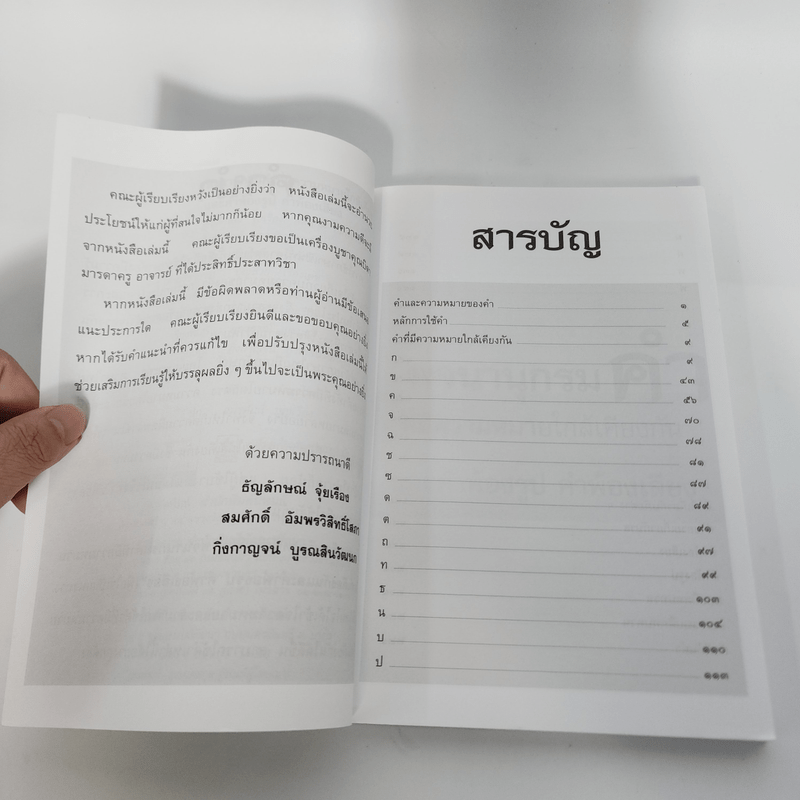 คณะผู้เรียบเรียงหวังเป็นอย่างยิ่งว่า หนังสือเล่มนี้จะอำนวย
ประโยชน์ให้แก่ผู้ที่สนใจไม่มากก็น้อย หากคุณงามความดี
จากหนังสือเล่มนี้ คณะผู้เรียบเรียงขอเป็นเครื่องบูชาคุณบิดา
มารดาครู อาจารย์ ที่ได้ประสิทธิ์ประสาทวิชา
หากหนังสือเล่มนี้ มีข้อผิดพลาดหรือท่านผู้อ่านมีข้อเสนอ
แนะประการใด คณะผู้เรียบเรียงยินดีและขอขอบคุณอย่างยิ่ง
หากได้รับคำแนะนำที่ควรแก้ไข เพื่อปรับปรุงหนังสือเล่มนี้
ช่วยเสริมการเรียนรู้ให้บรรลุผลยิ่ง ๆ ขึ้นไปจะเป็นพระคุณอย่างยิ่ง
ด้วยความปรารถนาดี
ธัญลักษณ์ จุ้ยเรือง
สมศักดิ์ อัมพรวิสิทธิ์โสภา
กิ่งกาญจน์ บูรณสินวัฒนก
สารบัญ
คำและความหมายของคำ ๑
หลักการใช้คำ ๕
คำที่มีความหมายใกล้เคียงกัน ๙
ก ๙
ข ๔๓
ค ๕๖
จ ๗๐
ฉ ๗๘
ช ๘๑
ซ ๘๗
ด ๘๙
ต ๙๑
ถ ๙๗
ท ๙๙
ธ ๑๐๓
น ๑๐๔
บ ๑๑๐
ป ๑๑๓